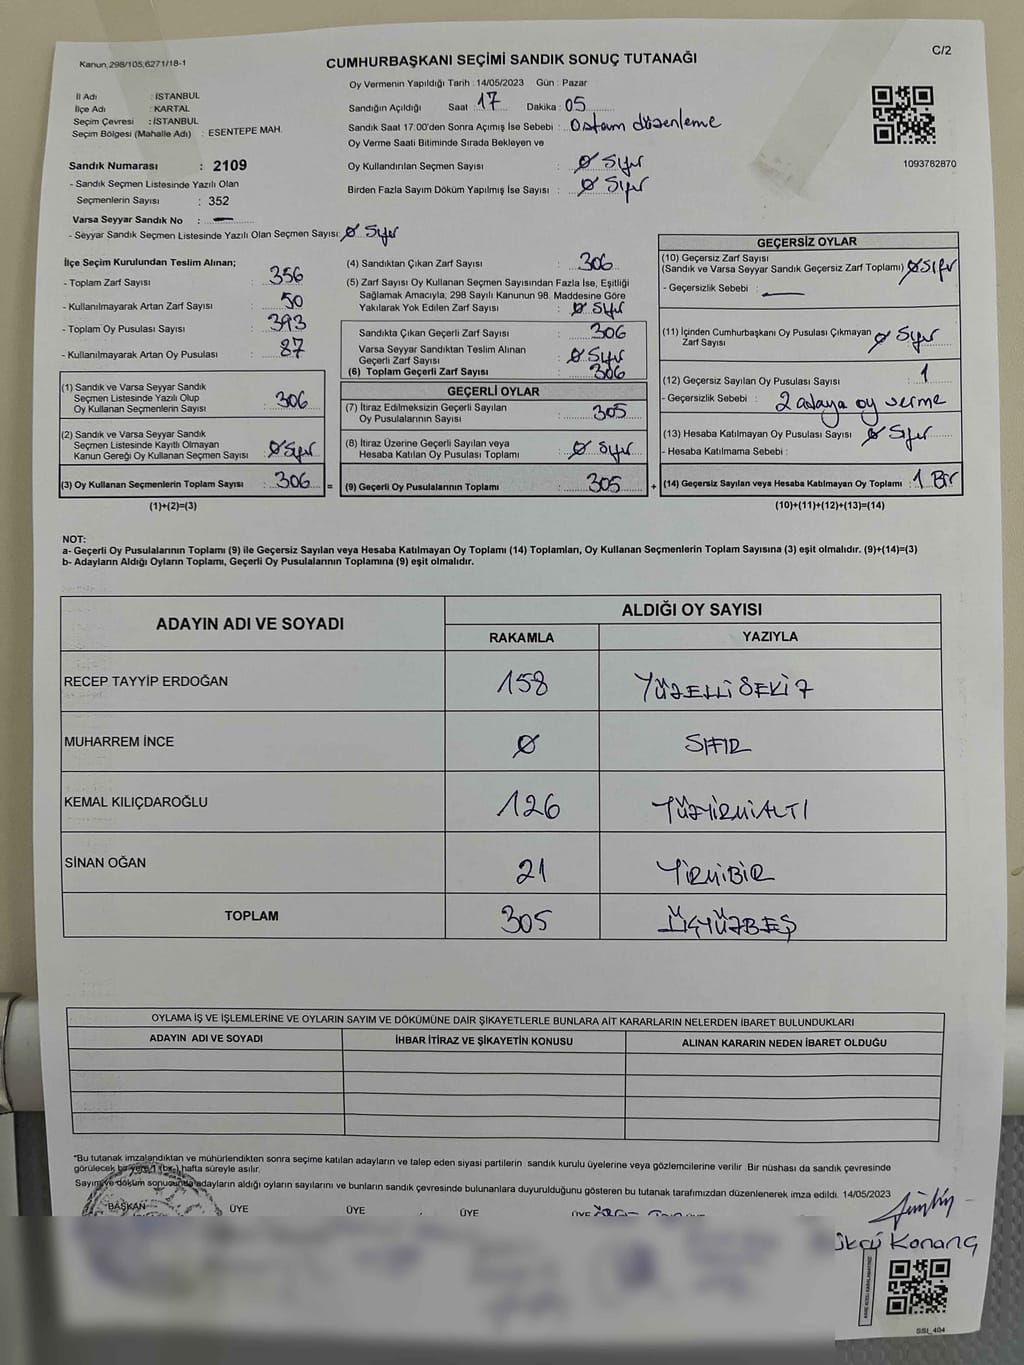 Kanun,298/105,6271/18-1
CUMHURBAŞKANI SEÇİMİ SANDIK SONUÇ TUTANAĞI
C/2
İl Adı : İSTANBUL
İlçe Adı : KARTAL
Seçim Çevresi : İSTANBUL
Seçim Bölgesi (Mahalle Adı) : ESENTEPE MAH.
Sandık Numarası : 2109
- Sandık Seçmen Listesinde Yazılı Olan
Seçmenlerin Sayısı : 352
Varsa Seyyar Sandık No : —
- Seyyar Sandık Seçmen Listesinde Yazılı Olan Seçmen Sayısı: 0 Sıfır
Oy Vermenin Yapıldığı Tarih : 14/05/2023 Gün : Pazar
Sandığın Açıldığı Saat : 17 Dakika : 05
Sandık Saat 17:00'den Sonra Açımış İse Sebebi : Ostam düzenleme
Oy Verme Saati Bitiminde Sırada Bekleyen ve
Oy Kullandırılan Seçmen Sayısı : 0 Sıfır
Birden Fazla Sayım Döküm Yapılmış İse Sayısı : 0 Sıfır
1093782870
İlçe Seçim Kurulundan Teslim Alınan;
- Toplam Zarf Sayısı : 356
- Kullanılmayarak Artan Zarf Sayısı : 50
- Toplam Oy Pusulası Sayısı : 393
- Kullanılmayarak Artan Oy Pusulası : 87
(1) Sandık ve Varsa Seyyar Sandık
Seçmen Listesinde Yazılı Olup
Oy Kullanan Seçmenlerin Sayısı : 306
(2) Sandık ve Varsa Seyyar Sandık
Seçmen Listesinde Kayıtlı Olmayan
Kanun Gereği Oy Kullanan Seçmen Sayısı : 0 Sıfır
(3) Oy Kullanan Seçmenlerin Toplam Sayısı : 306 =
(1)+(2)=(3)
(4) Sandıktan Çıkan Zarf Sayısı : 306
(5) Zarf Sayısı Oy Kullanan Seçmen Sayısından Fazla İse, Eşitliği
Sağlamak Amacıyla; 298 Sayılı Kanunun 98. Maddesine Göre
Yakılarak Yok Edilen Zarf Sayısı : 0 Sıfır
Sandıkta Çıkan Geçerli Zarf Sayısı : 306
Varsa Seyyar Sandıktan Teslim Alınan
Geçerli Zarf Sayısı : 0 Sıfır
(6) Toplam Geçerli Zarf Sayısı : 306
GEÇERLİ OYLAR
(7) İtiraz Edilmeksizin Geçerli Sayılan
Oy Pusulalarının Sayısı : 305
(8) İtiraz Üzerine Geçerli Sayılan veya
Hesaba Katılan Oy Pusulası Toplamı : 0 Sıfır
(9) Geçerli Oy Pusulalarının Toplamı : 305 +
GEÇERSİZ OYLAR
(10) Geçersiz Zarf Sayısı
(Sandık ve Varsa Seyyar Sandık Geçersiz Zarf Toplamı) : 0 Sıfır
- Geçersizlik Sebebi : —
(11) İçinden Cumhurbaşkanı Oy Pusulası Çıkmayan
Zarf Sayısı : 0 Sıfır
(12) Geçersiz Sayılan Oy Pusulası Sayısı : 1
- Geçersizlik Sebebi : 2 adaya oy verme
(13) Hesaba Katılmayan Oy Pusulası Sayısı : 0 Sıfır
- Hesaba Katılmama Sebebi :
(14) Geçersiz Sayılan veya Hesaba Katılmayan Oy Toplamı : 1 Bir
(10)+(11)+(12)+(13)=(14)
NOT:
a- Geçerli Oy Pusulalarının Toplamı (9) ile Geçersiz Sayılan veya Hesaba Katılmayan Oy Toplamı (14) Toplamları, Oy Kullanan Seçmenlerin Toplam Sayısına (3) eşit olmalıdır. (9)+(14)=(3)
b- Adayların Aldığı Oyların Toplamı, Geçerli Oy Pusulalarının Toplamına (9) eşit olmalıdır.
ADAYIN ADI VE SOYADI
ALDIĞI OY SAYISI
RAKAMLA YAZIYLA
RECEP TAYYİP ERDOĞAN 158 YÜZELLİSEKİZ
MUHARREM İNCE 0 SIFIR
KEMAL KILIÇDAROĞLU 126 YÜZYİRMİALTI
SİNAN OĞAN 21 YİRMİBİR
TOPLAM 305 ÜÇYÜZBEŞ
OYLAMA İŞ VE İŞLEMLERİNE VE OYLARIN SAYIM VE DÖKÜMÜNE DAİR ŞİKAYETLERLE BUNLARA AİT KARARLARIN NELERDEN İBARET BULUNDUKLARI
ADAYIN ADI VE SOYADI İHBAR İTİRAZ VE ŞİKAYETİN KONUSU ALINAN KARARIN NEDEN İBARET OLDUĞU
"Bu tutanak imzalandıktan ve mühürlendikten sonra seçime katılan adayların ve talep eden siyasi partilerin sandık kurulu üyelerine veya gözlemcilerine verilir .Bir nüshası da sandık çevresinde
görülecek bir yere 1 (bir) hafta süreyle asılır.
Sayım ve döküm sonucunda adayların aldığı oyların sayılarını ve bunların sandık çevresinde bulunanlara duyurulduğunu gösteren bu tutanak tarafımızdan düzenlenerek imza edildi. 14/05/2023
BAŞKAN ÜYE ÜYE ÜYE ÜYE
Konanç
SSI_404